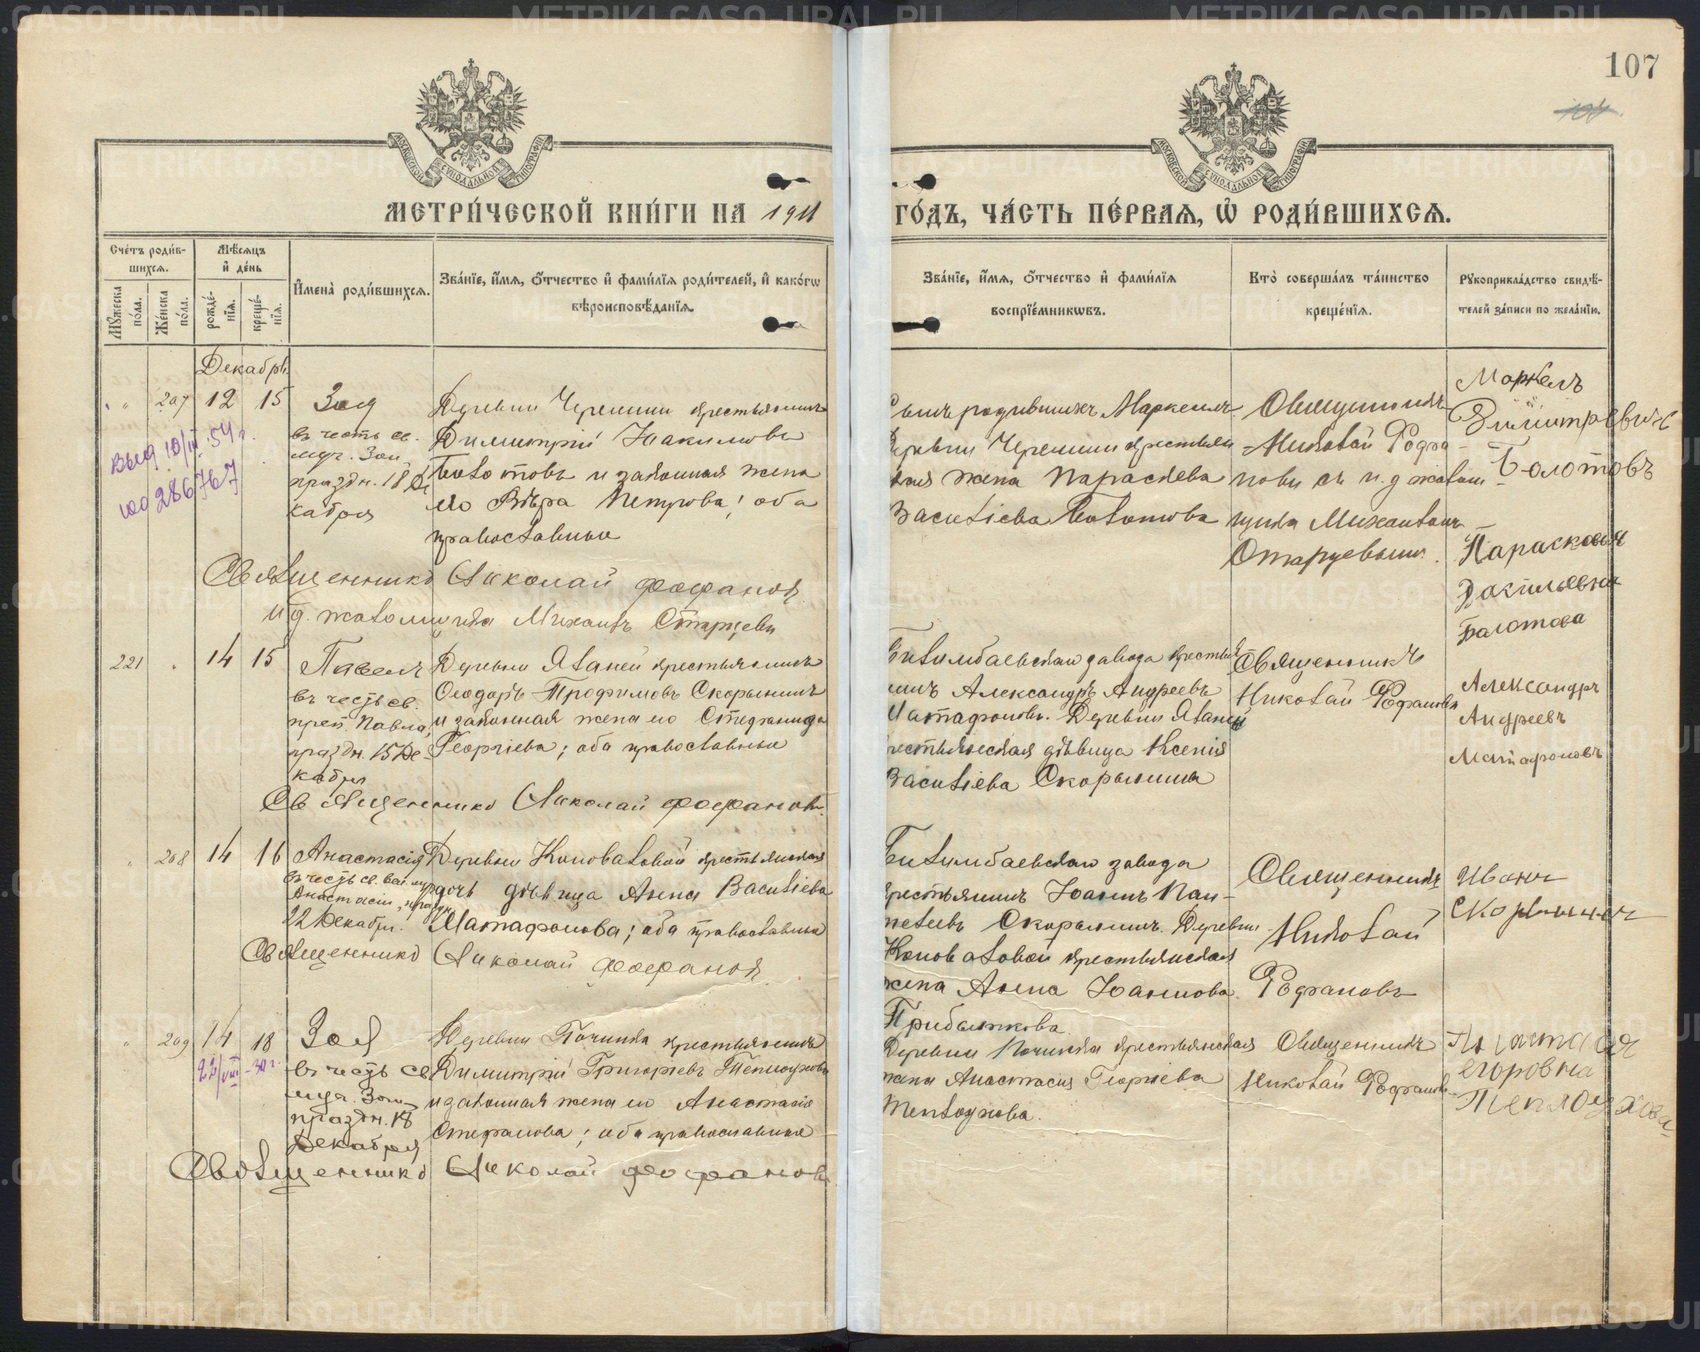 107
МЕТРИ́ЧЕСКОЙ КНИ́ГИ НА 1911
ГО́ДЪ, ЧА́СТЬ ПЕ́РВАЯ, Ѽ РОДИ́ВШИХСЯ.
Сче́тъ роди́в-
шихся.
Мѣ́сяцъ
и҆ де́нь
Мꙋ́жеска
по́ла.
Же́нска
по́ла.
рожде́-
нїя.
креще́-
нїя.
И҆мена̀ роди́вшихся.
Зва́нїе, и҆́мя, ѻ҆́тчество и҆ фами́лїя роди́телей, и҆ како́гѡ
вѣроисповѣ́данїя.
Зва́нїе, и҆́мя, ѻ҆́тчество и҆ фами́лїя
воспрїе́мникѡвъ.
Кто̀ соверша́лъ та́инство
креще́нїя.
Рꙋкоприкла́дство свидѣ́-
телей за́писи по жела́нїю.
Декабрь
207 12 15
Зоя
въ честь св.
муч. Зои,
праздн. 18 Де
кабря
Деревни Черемши крестьянинъ
Димитрій Іоакимовъ
Болотовъ и законная жена
его Вѣра Петрова; оба
православные
Сынъ родившихъ Маркеллъ.
Деревни Черемши крестьян
ская жена Параскева
Васильева Болотова
Священникъ
Николай Фофа-
новъ съ и. д. псалом-
щика Михаиломъ
Старцевымъ.
Маркелъ
Димитревичъ
Болотовъ
Парасковья
Васильевна
Балотова
выд 10/III 54 г.
юо 286767
Священникъ Николай Фофановъ
И д. псаломщика Михаилъ Старцевъ
221 14 15
Павелъ
въ честь св.
преп. Павла,
праздн. 15 Де-
кабря
Деревни Яланей крестьянинъ
Ѳеодоръ Трофимовъ Скорынинъ
и законная жена его Стефанида
Георгіева; оба православные
Билимбаевскаго завода крестья
нинъ Александръ Андреевъ
Матафоновъ. Деревни Яланей
крестьянская дѣвица Ксенія
Васильева Скорынина
Священникъ
Николай Фофановъ
Александръ
Андреевъ
Матафоновъ
Священникъ Николай Фофановъ.
208 14 16
Анастасія
въ честь св. вел. муч.
Анастасіи, праздн.
22 Декабря.
Деревни Коноваловой крестьянская
дочь дѣвица Анна Васильева
Матафонова; оба православные
Билимбаевскаго завода
крестьянинъ Іоаннъ Пан-
телѣевъ Скорынинъ. Деревни
Коноваловой крестьянская
жена Анна Іоаннова
Прибылькова.
Священникъ
Николай
Фофановъ
Иванъ
Скорынинъ
Священникъ Николай Фофановъ.
209 14 18
22/VIII - 30 г.
Зоя
въ честь св.
муч. Зои,
праздн. 18
Декабря
Деревни Починка крестьянинъ
Димитрій Григорьевъ Теплоуховъ
и законная жена его Анастасія
Стефанова; оба православные
Деревни Починка крестьянская
жена Анастасія Георгіева
Теплоухова.
Священникъ
Николай Фофановъ
Анастасия
Егоровна
Теплоухова
Священникъ Николай Фофановъ
METRIKI.GASO-URAL.RU